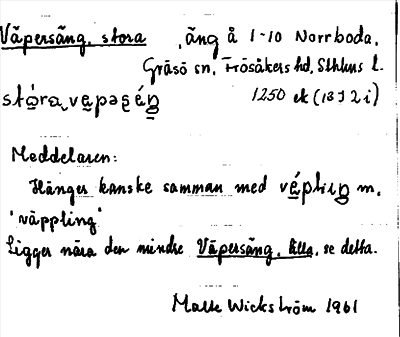 Väpersäng, stora , äng å 1-10 Norrboda,
Gräsö sn, Frösåkers hd, Sthlms l.
1250 ek (13 I 2 i)
Meddelaren:
Hänger kanske samman med m.
"väppling"
Ligger nära den mindre Väpersäng, lilla, se detta.
Malte Wickström 1961